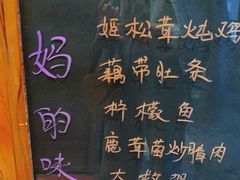 妈的味
姬松茸炖鸡
藕带肚条
柠檬鱼
鹿茸菌炒腊肉